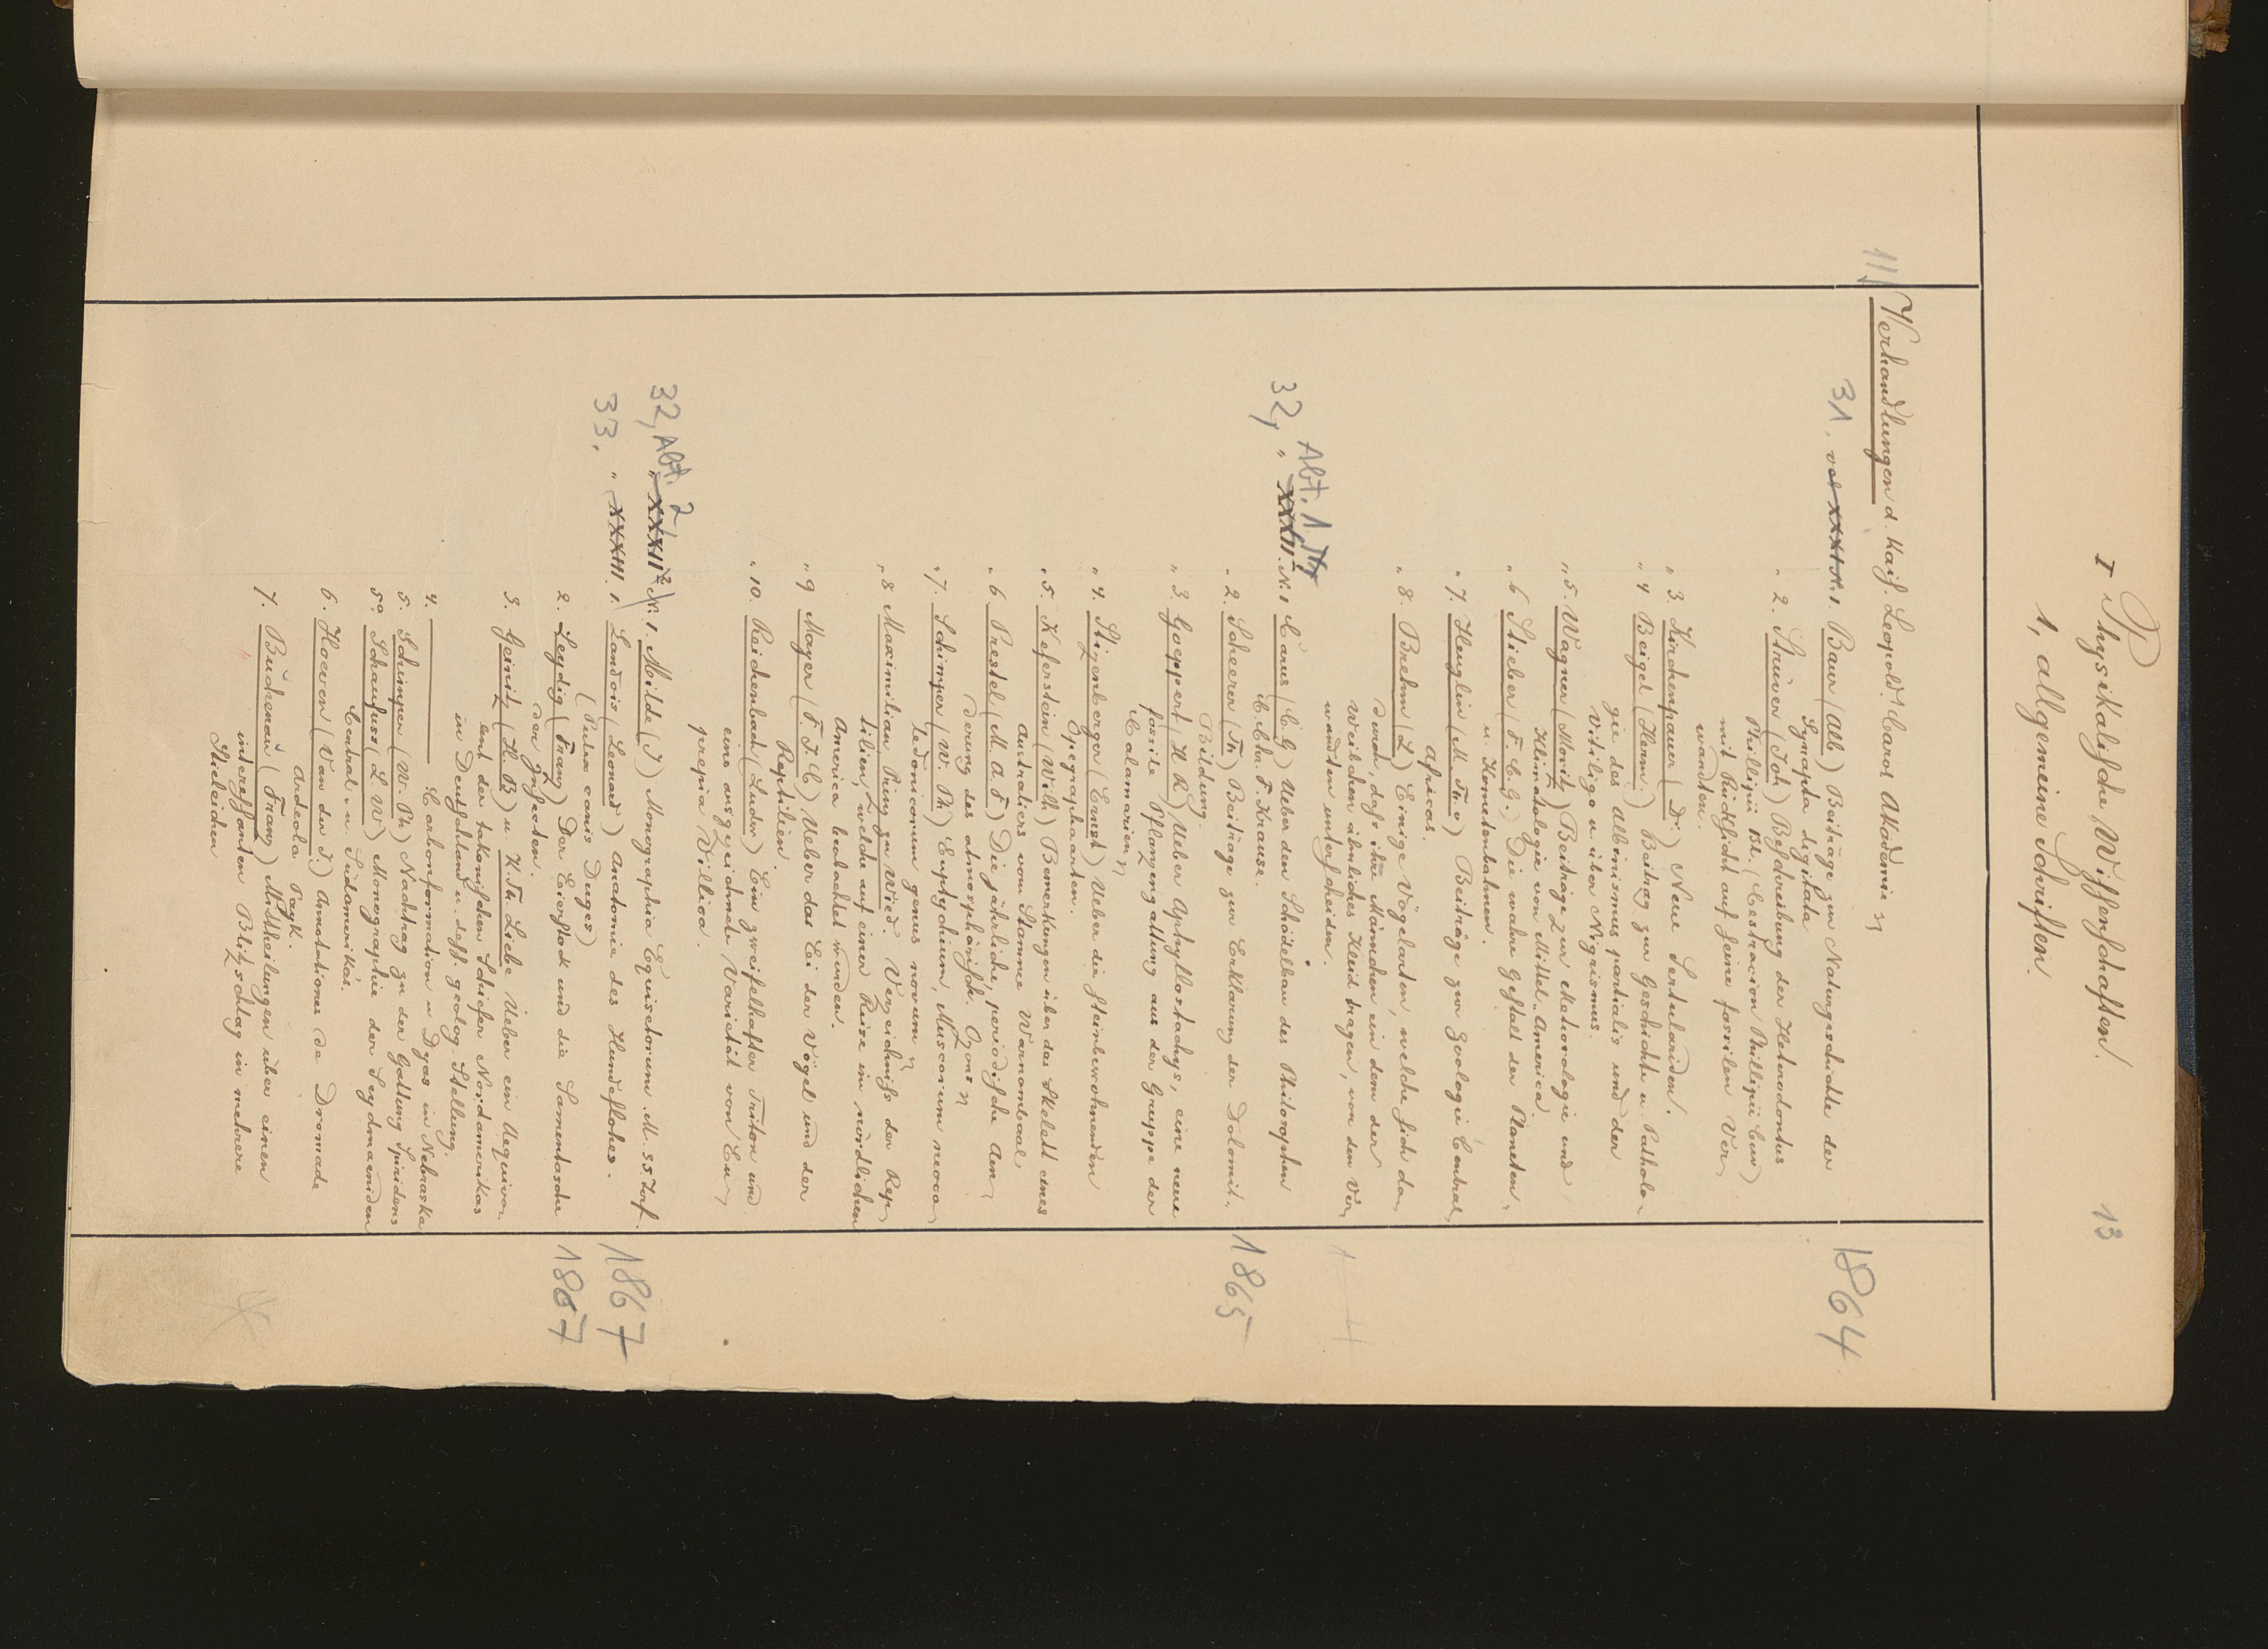 I Physikalische Wissenschaften. 13
1, allgemeine Schriften.
11, Verhandlungen d. Kais. Leopold. Carol Akademie
31, vol XXXI N. 1. Baur (Alb) Beiträge zur Naturgeschichte der 1864
Synapta digitata
" 2. Strüver (Joh) Beschreibung der Heterodontus
Phillipii Bl. (Cestracion Phillipii Cuv)
mit Rücksicht auf seine fossilen Ver
wandten.
" 3. Kirchenpauer (Dr.) Neue Sertulariden.
" 4 Beigel (Herm.) Beitrag zur Geschichte u Patholo
gie des Albinismus partialis und der
Vitiligo u über Nigrismus.
" 5. Wagner (Moritz) Beiträge zur Meteorologie und
Klimatologie von Mittel-America.
" 6 Stieber (F. C. G.) Die wahre Gestalt der Planeten,
u. Kometenbahnen.
" 7. Heuglin (M. Th. v) Beiträge zur Zoologie Central
Africas.
" 8. Brehm (L) Einige Vögelarten, welche sich da
durch, dass ihre Mänchen ein dem der
Weibchen ähnliches Kleid tragen, von den Ver
wandten unterscheiden.
Abt. 1
32, " XXXII. N. 1 Carus (C. G) Ueber den Schödelbau des Philosophen
C. Chr. F. Krause.
" 2. Scheerer (Th) Beiträge zur Erklärung der Dolomit. 1865
Bildung.
" 3. Goeppert (H R) Ueber Aphyllostachys, eine neue
fossile Pflanzengattung aus der Gruppe der
Calamarien
" 4. Stizenberger (Ernst) Ueber die steinbewohnenden
Opegraphaarten.
" 5. Keferstein (Wilh) Bemerkungen über das Skelett eines
Australiers vom Stamme Warnambool
" 6 Prestel (M. A. F) Die jährliche, periodische Aen
derung des atmosphärisch. Ozons
" 7. Schimper (W. Ph) Euptychium, Muscorum neoca
ledonicorum genus novum
" 8 Maximilian Prinz zu Wied. Verzeichniss der Rep
tilien, welche auf einer Reise im nördlichen
America beobachtet wurden.
" 9 Mayer (F. J. C) Ueber das Ei der Vögel und der
Reptilien.
" 10. Reichenbach (Ludw) Ein zweifelhafter Triton und
eine ausgezeichnete Varietät von Eu
prepia Villica.
32, Abt. 2 " XXXII² N. 1. Milde (J) Monographia Equisetorum M. 35 Taf.
33, " XXXIII 1. Landois (Leonard) Anatomie des Hundeflohes. 1867
(Pulex canis Duges)
2. Leydig (Franz) Der Eierstock und die Samentasche 1867
der Insecten.
3. Geinitz (H. B) u. K. Th. Liebe Ueber ein Aequiva
lent der takonischen Schiefer Nordamerikas
in Deutschland u. dess. geolog. Stellung.
4. Carbonformation u Dyas in Nebraska
5. Schimper (W. Ph) Nachtrag zu der Gattung Spiridens
5a Schaufuss (L. W) Monographie der Scydmaeniden
Central- u. Südamerika's.
6. Hoeven (Van der J.) Annotationes de Dromade
Ardeola Payk.
7. Buchenau (Franz) Mittheilungen über einen
interessanten Blitzschlag in mehrere
Stieleichen